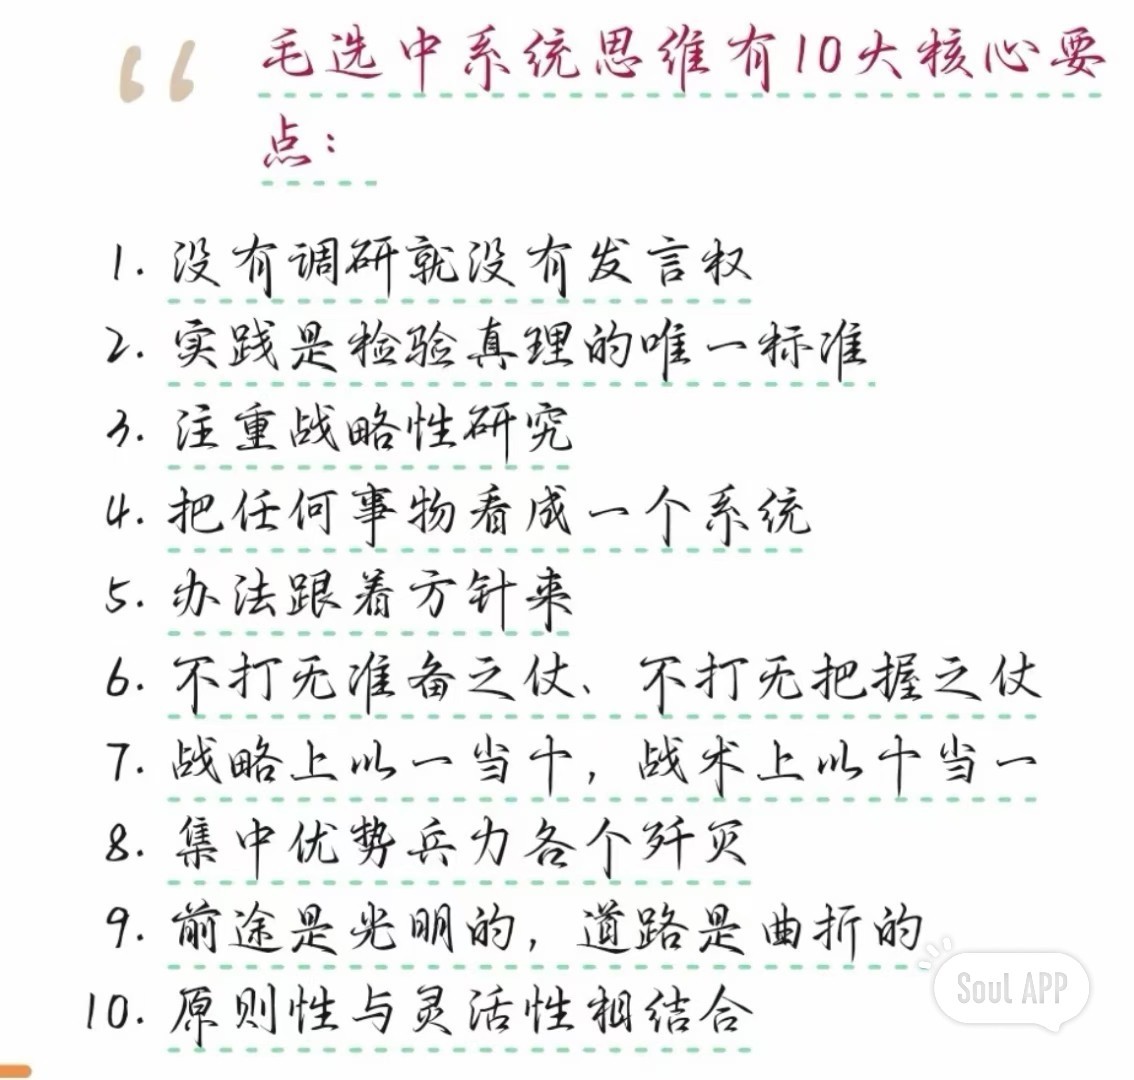 毛选中系统思维有10大核心要
点：
1. 没有调研就没有发言权
2. 实践是检验真理的唯一标准
3. 注重战略性研究
4. 把任何事物看成一个系统
5. 办法跟着方针来
6. 不打无准备之仗、不打无把握之仗
7. 战略上以一当十，战术上以十当一
8. 集中优势兵力各个歼灭
9. 前途是光明的，道路是曲折的
10. 原则性与灵活性相结合
Soul APP